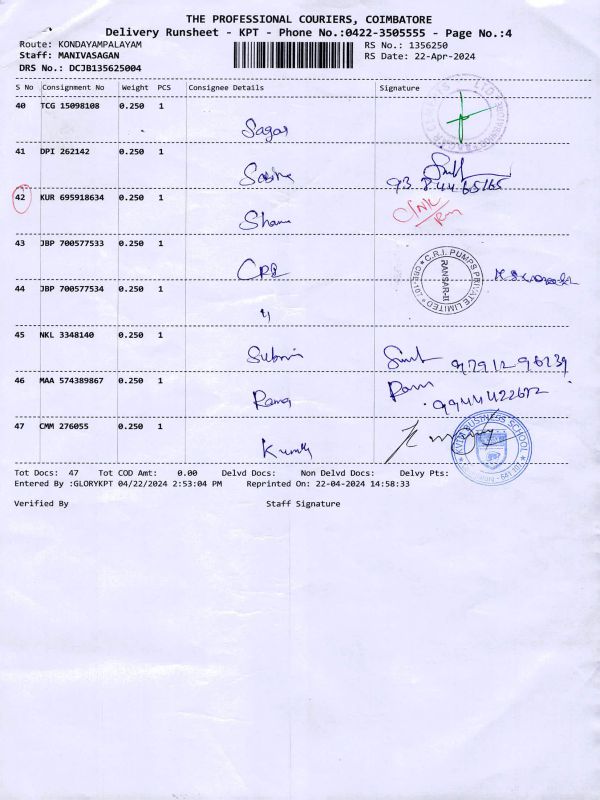 THE PROFESSIONAL COURIERS, COIMBATORE
Delivery Runsheet - KPT - Phone No.:0422-3505555 - Page No.:4
Route: KONDAYAMPALAYAM RS No.: 1356250
Staff: MANIVASAGAN RS Date: 22-Apr-2024
DRS No.: DCJB135625004
S No Consignment No Weight PCS Consignee Details Signature
40 TCG 15098108 0.250 1
Sagar
41 DPI 262142 0.250 1
93 844 65165
42 KUR 695918634 0.250 1
43 JBP 700577533 0.250 1
CRI
C.R.I. PUMPS PRIVATE LIMITED
44 JBP 700577534 0.250 1
45 NKL 3348140 0.250 1
46 MAA 574389867 0.250 1
Rama Ram
9944422672
47 CMM 276055 0.250 1
BUSINESS SCHOOL
Tot Docs: 47 Tot COD Amt: 0.00 Delvd Docs: Non Delvd Docs: Delvy Pts:
Entered By :GLORYKPT 04/22/2024 2:53:04 PM Reprinted On: 22-04-2024 14:58:33
Verified By Staff Signature